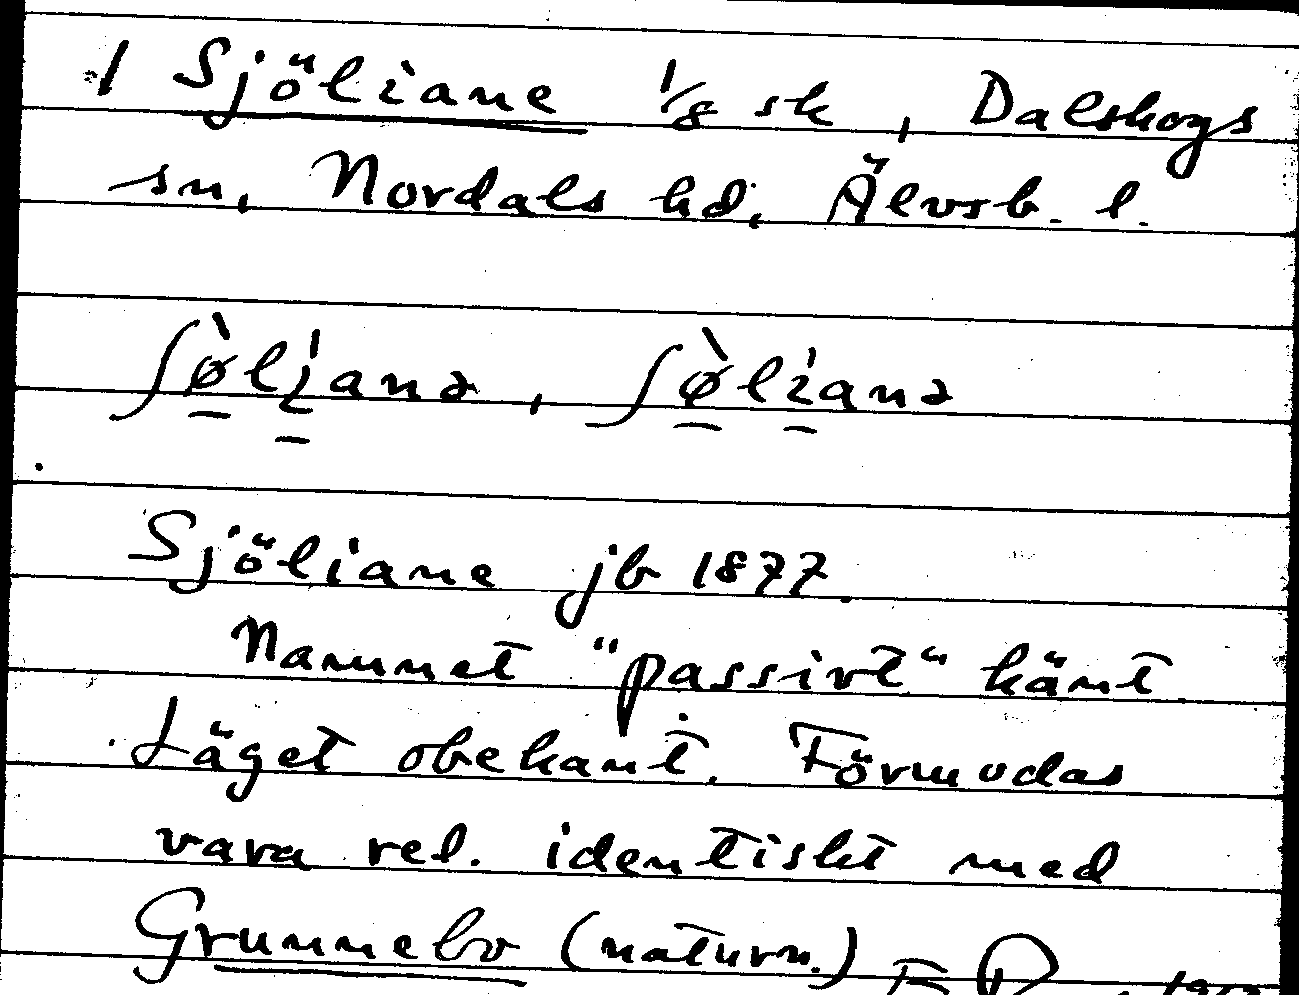 1 Sjöliane 1/8 sk, Dalskogs
sn, Nordals hd, Älvsb. l.
ʃø̀lìanə, ʃø̀lianə
Sjöliane jb 1877.
Namnet "passivt" känt
Läget obekant. Förmodas
vara rel. identiskt med
Grunnebo (naturn.)